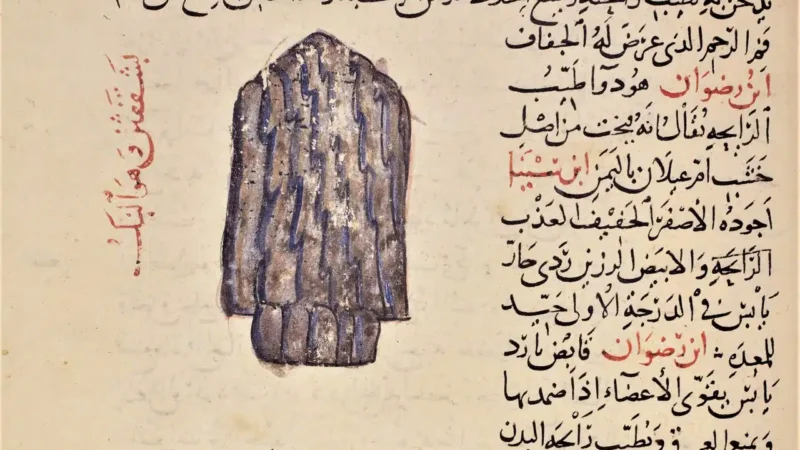 فم الرحم الذى عرض له الجفاف
ابن رضوان هو دوا طيب
الرايحه يقال انه ينحت من اصل
خشب ام غيلان باليمن ابن سينا
اجوده الاصفر الخفيف العذب
الرايحة والابيض الرزين ردى حار
يابس فى الدرجة الاولى جيد
للمعده ابن رضوان قابض بارد
يابس يقوى الأعضاء اذا ضمد بها
ويمنع العرق ويطيب رايحه البدن
وهو البنك